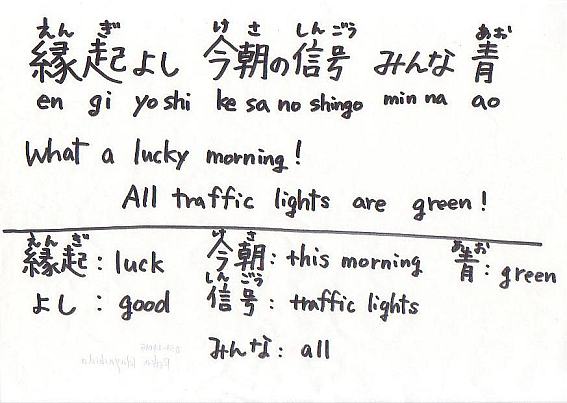 えん ぎ け さ しん ごう あお
縁起よし 今朝の信号 みんな 青
en gi yo shi ke sa no shingo min na ao
What a lucky morning!
All traffic lights are green!
えん ぎ け さ あお
縁起: luck 今朝: this morning 青: green
しん ごう
よし: good 信号: traffic lights
みんな: all